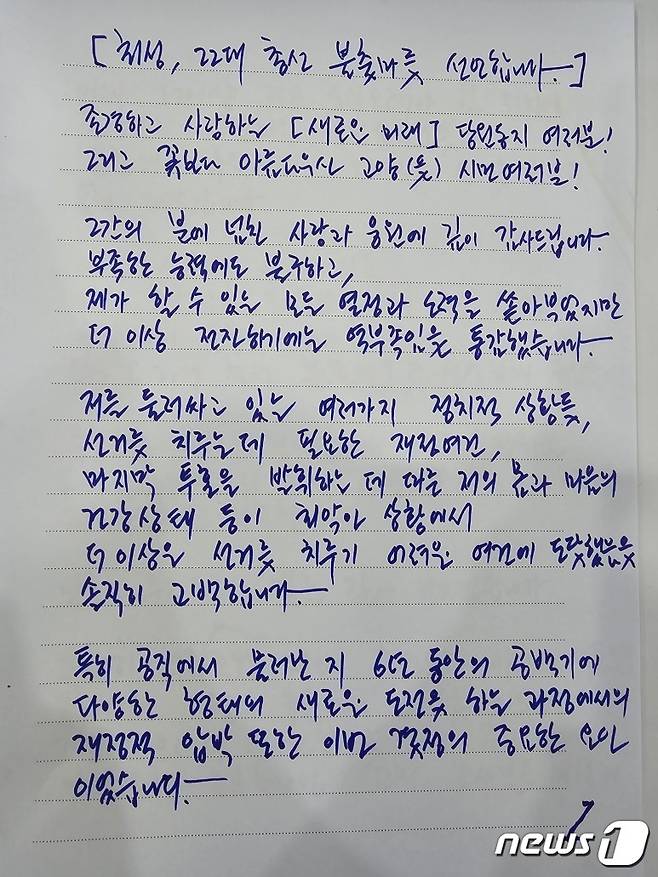 [최성, 22대 총선 불출마를 선언합니다.]
존경하고 사랑하는 [새로운 미래] 당원동지 여러분!
그리고 꽃보다 아름다우신 고양(을) 시민여러분!
그간의 분에 넘친 사랑과 응원에 깊이 감사드립니다.
부족한 능력에도 불구하고,
제가 할 수 있는 모든 열정과 노력을 쏟아부었지만
더 이상 전진하기에는 역부족임을 통감했습니다.
저를 둘러싸고 있는 여러가지 정치적 상황들,
선거를 치루는데 필요한 재정여건,
마지막 투혼을 발휘하는 데 따른 저의 몸과 마음의
건강상태 등이 최악인 상황에서
더이상은 선거를 치루기 어려운 여건에 도달했음을
솔직히 고백합니다.
특히 공직에서 물러난 지 6년 동안의 공백기에
다양한 형태의 새로운 도전을 하는 과정에서의
재정적 압박 또한 이번 결정의 중요한 요인
이었습니다.
1
news1